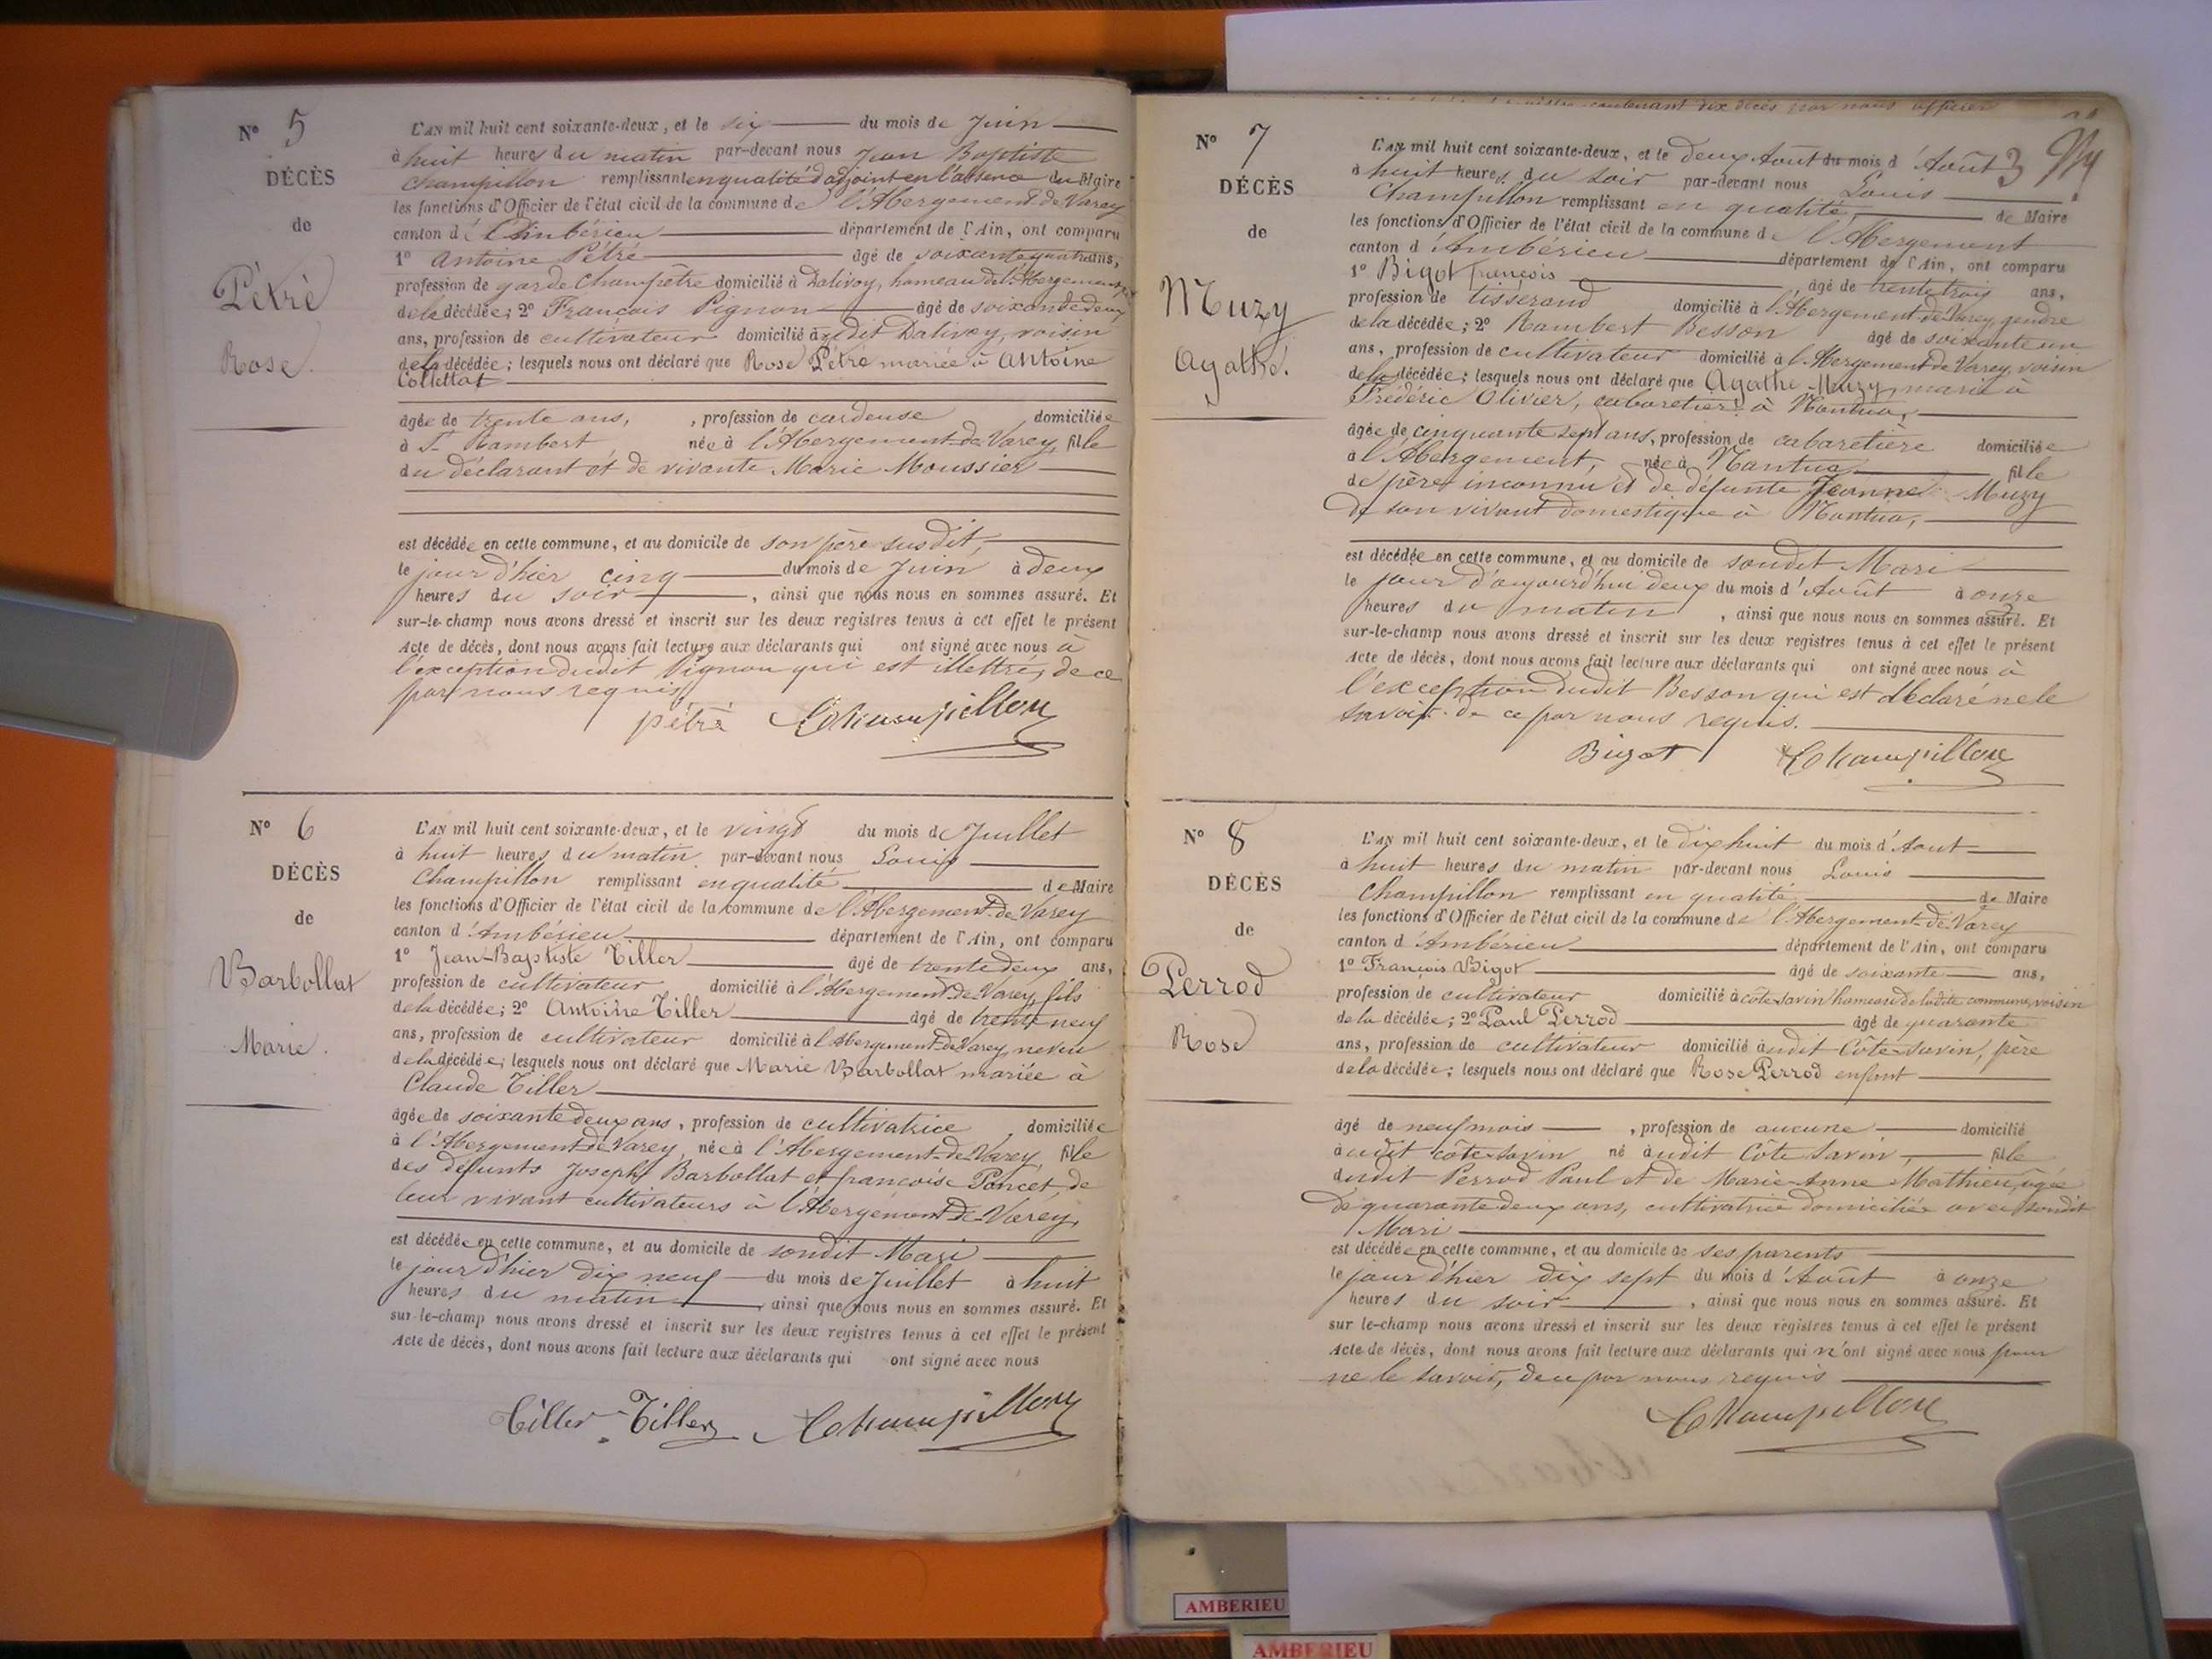 N° 5
DÉCÈS
de
Pétré
Rose.
L'AN mil huit cent soixante-deux, et le six du mois de Juin
à huit heures du matin par-devant nous Jean Baptiste
Champillon remplissant en qualité d'adjoint en l'absence du Maire
les fonctions d'Officier de l'état civil de la commune de l'Abergement de Varey
canton d'Ambérieu département de l'Ain, ont comparu
1° Antoine Pétré âgé de soixante quatre ans,
profession de garde Champêtre domicilié à Dalivoy, hameau de l'Abergement
de la décédée; 2° François Pignon âgé de soixante deux
ans, profession de cultivateur domicilié audit Dalivoy, voisin
de la décédée; lesquels nous ont déclaré que Rose Pétré mariée à Antoine
Collettat
âgée de trente ans, profession de cardeuse domiciliée
à St Rambert née à l'Abergement de Varey, fille
du déclarant et de vivante Marie Moussier
est décédée en cette commune, et au domicile de son père susdit,
le jour d'hier cinq du mois de Juin à deux
heures du soir, ainsi que nous nous en sommes assuré. Et
sur-le-champ nous avons dressé et inscrit sur les deux registres tenus à cet effet le présent
Acte de décès, dont nous avons fait lecture aux déclarants qui ont signé avec nous à
l'exception dudit Pignon qui est illettré, de ce
par nous requis
pétré Champillon
N° 6
DÉCÈS
de
Barbollat
Marie.
L'AN mil huit cent soixante-deux, et le vingt du mois de Juillet
à huit heures du matin par-devant nous Louis
Champillon remplissant en qualité de Maire
les fonctions d'Officier de l'état civil de la commune de l'Abergement-de-Varey
canton d'Ambérieu département de l'Ain, ont comparu
1° Jean-Baptiste Tiller âgé de trente deux ans,
profession de cultivateur domicilié à l'Abergement-de-Varey, fils
de la décédée; 2° Antoine Tiller âgé de trente neuf
ans, profession de cultivateur domicilié à l'Abergement-de-Varey, neveu
de la décédée; lesquels nous ont déclaré que Marie Barbollat mariée à
Claude Tiller
âgée de soixante deux ans, profession de cultivatrice, domiciliée
à l'Abergement-de-Varey, née à l'Abergement-de-Varey, fille
des défunts Joseph Barbollat et françoise Poncet, de
leur vivant cultivateurs à l'Abergement-de-Varey,
est décédée en cette commune, et au domicile de sondit Mari
le jour d'hier dix neuf du mois de Juillet à huit
heures du matin, ainsi que nous nous en sommes assuré. Et
sur-le-champ nous avons dressé et inscrit sur les deux registres tenus à cet effet le présent
Acte de décès, dont nous avons fait lecture aux déclarants qui ont signé avec nous
Tiller Tiller Champillon
contenant dix décès par nous officier
3
N° 7
DÉCÈS
de
Muzy
Agathe.
L'AN mil huit cent soixante-deux, et le deux Août du mois d'Août
à huit heures du soir par-devant nous Louis
Champillon remplissant en qualité, de Maire
les fonctions d'Officier de l'état civil de la commune de l'Abergement
canton d'Ambérieu département de l'Ain, ont comparu
1° Bigot françois, âgé de trente trois ans,
profession de tisserand domicilié à l'Abergement-de-Varey, gendre
de la décédée; 2° Rambert Besson âgé de soixante un
ans, profession de cultivateur domicilié à l'Abergement de Varey, voisin
de la décédée; lesquels nous ont déclaré que Agathe Muzy, marié à
Frédéric Olivier, cabaretier à Nantua,
âgée de cinquante sept ans, profession de cabaretière domiciliée
à l'Abergement, née à Nantua fille
de père inconnu et de défunte Jeanne Muzy
de son vivant domestique à Nantua,
est décédée en cette commune, et au domicile de sondit Mari
le jour d'aujourd'hui deux du mois d'Août à onze
heures du matin, ainsi que nous nous en sommes assuré. Et
sur-le-champ nous avons dressé et inscrit sur les deux registres tenus à cet effet le présent
Acte de décès, dont nous avons fait lecture aux déclarants qui ont signé avec nous à
l'exception dudit Besson qui est déclaré ne le
savoir de ce par nous requis.
Bigot Champillon
N° 8
DÉCÈS
de
Perrod
Rose
L'AN mil huit cent soixante-deux, et le dix huit du mois d'Aout
à huit heures du matin par-devant nous Louis
Champillon remplissant en qualité de Maire
les fonctions d'Officier de l'état civil de la commune de l'Abergement-de-Varey
canton d'Ambérieu département de l'Ain, ont comparu
1° François Bigot âgé de soixante ans,
profession de cultivateur domicilié à côte-savin hameau de ladite commune, voisin
de la décédée; 2° Paul Perrod âgé de quarante
ans, profession de cultivateur domicilié audit Côte-savin, père
de la décédée; lesquels nous ont déclaré que Rose Perrod enfant
âgé de neuf mois, profession de aucune domicilié
audit côte-savin né audit Côte Savin, fille
dudit Perrod Paul et de Marie-Anne Mathieu, âgée
de quarante deux ans, cultivatrice domiciliée avec sondit
Mari
est décédée en cette commune, et au domicile de ses parents
le jour d'hier dix sept du mois d'Août à onze
heures du soir, ainsi que nous nous en sommes assuré. Et
sur le-champ nous avons dressé et inscrit sur les deux registres tenus à cet effet le présent
Acte de décès, dont nous avons fait lecture aux déclarants qui n'ont signé avec nous pour
ne le savoir, de ce par nous requis
Champillon
AMBERIEU
AMBERIEU